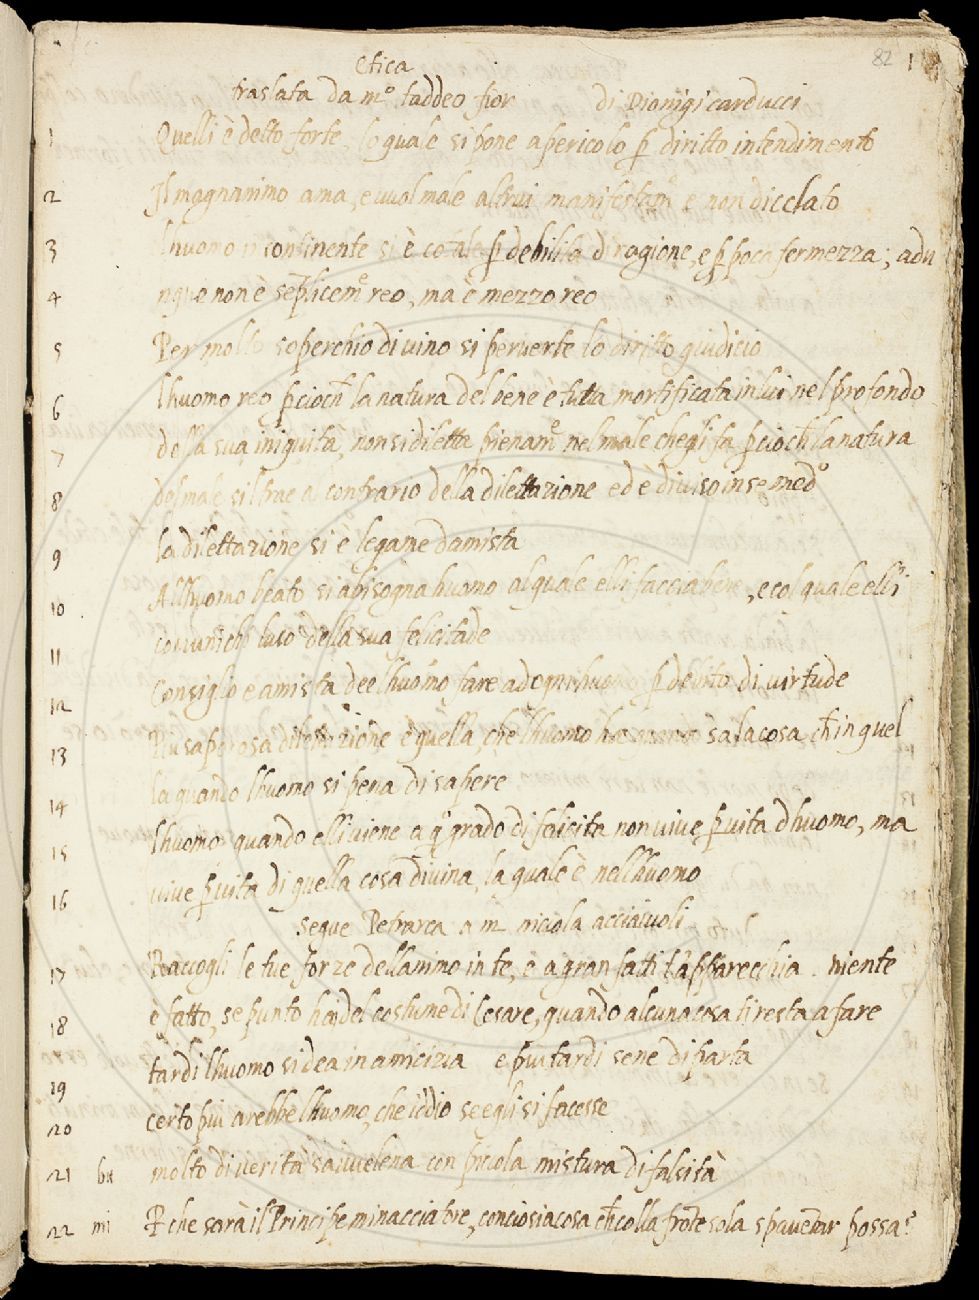 82 1
Etica
traslata da m.º taddeo fior di Dionigi carducci
1 Quelli è detto forte, lo quale si pone a pericolo p diritto intendimento
2 Il magnanimo ama, e vuol male altrui manifestam.e e non di celato
3 lhuomo incontinente si è cotale p debilità di ragione, e p poca fermezza; adu
4 nque non è seplicem.e reo, ma è mezzo reo
5 Per molto soperchio di vino si perverte lo diritto giudicio
6 lhuomo reo pcioch la natura del bene è tutta mortificata in lui nel profondo
7 della sua iniquita, non si diletta pienam.e nel male chegli fa pcioch la natura
8 del male si trae a contrario della dilettazione ed è diviso in se med.o
9 la dilettazione si è legame damista
10 Allhuomo beato si abisogna huomo al quale elli faccia bene, e col quale elli
11 comunichi luso della sua felicitade
12 Consiglio e amista dee lhuomo fare ad ognihuomo p debito di virtude
13 Piu saporosa dilettazione è quella, che lhuomo ha sa la cosa ch in quel
14 la quando lhuomo si pena di sapere
15 lhuomo quando elli viene a q.o grado di felicita non vive p vita dhuomo, ma
16 vive p vita di quella cosa divina, la quale è nellhuomo
segue Petrarca a m. nicola acciaiuoli
17 Raccogli le tue forze dellanimo in te, e a gran fatti tapparecchia. niente
18 è fatto, se punto hai del costume di Cesare, quando alcuna cosa ti resta a fare
19 tardi lhuomo si dea in amicizia e piu tardi sene diparta
20 certo più arebbe lhuomo, che iddio se egli si facesse
21 molto di verita savvelena con picciola mistura di falsità
22 mi P che sarà il Principe minacciatore, conciosiacosa ch colla frote sola spaventar possa?